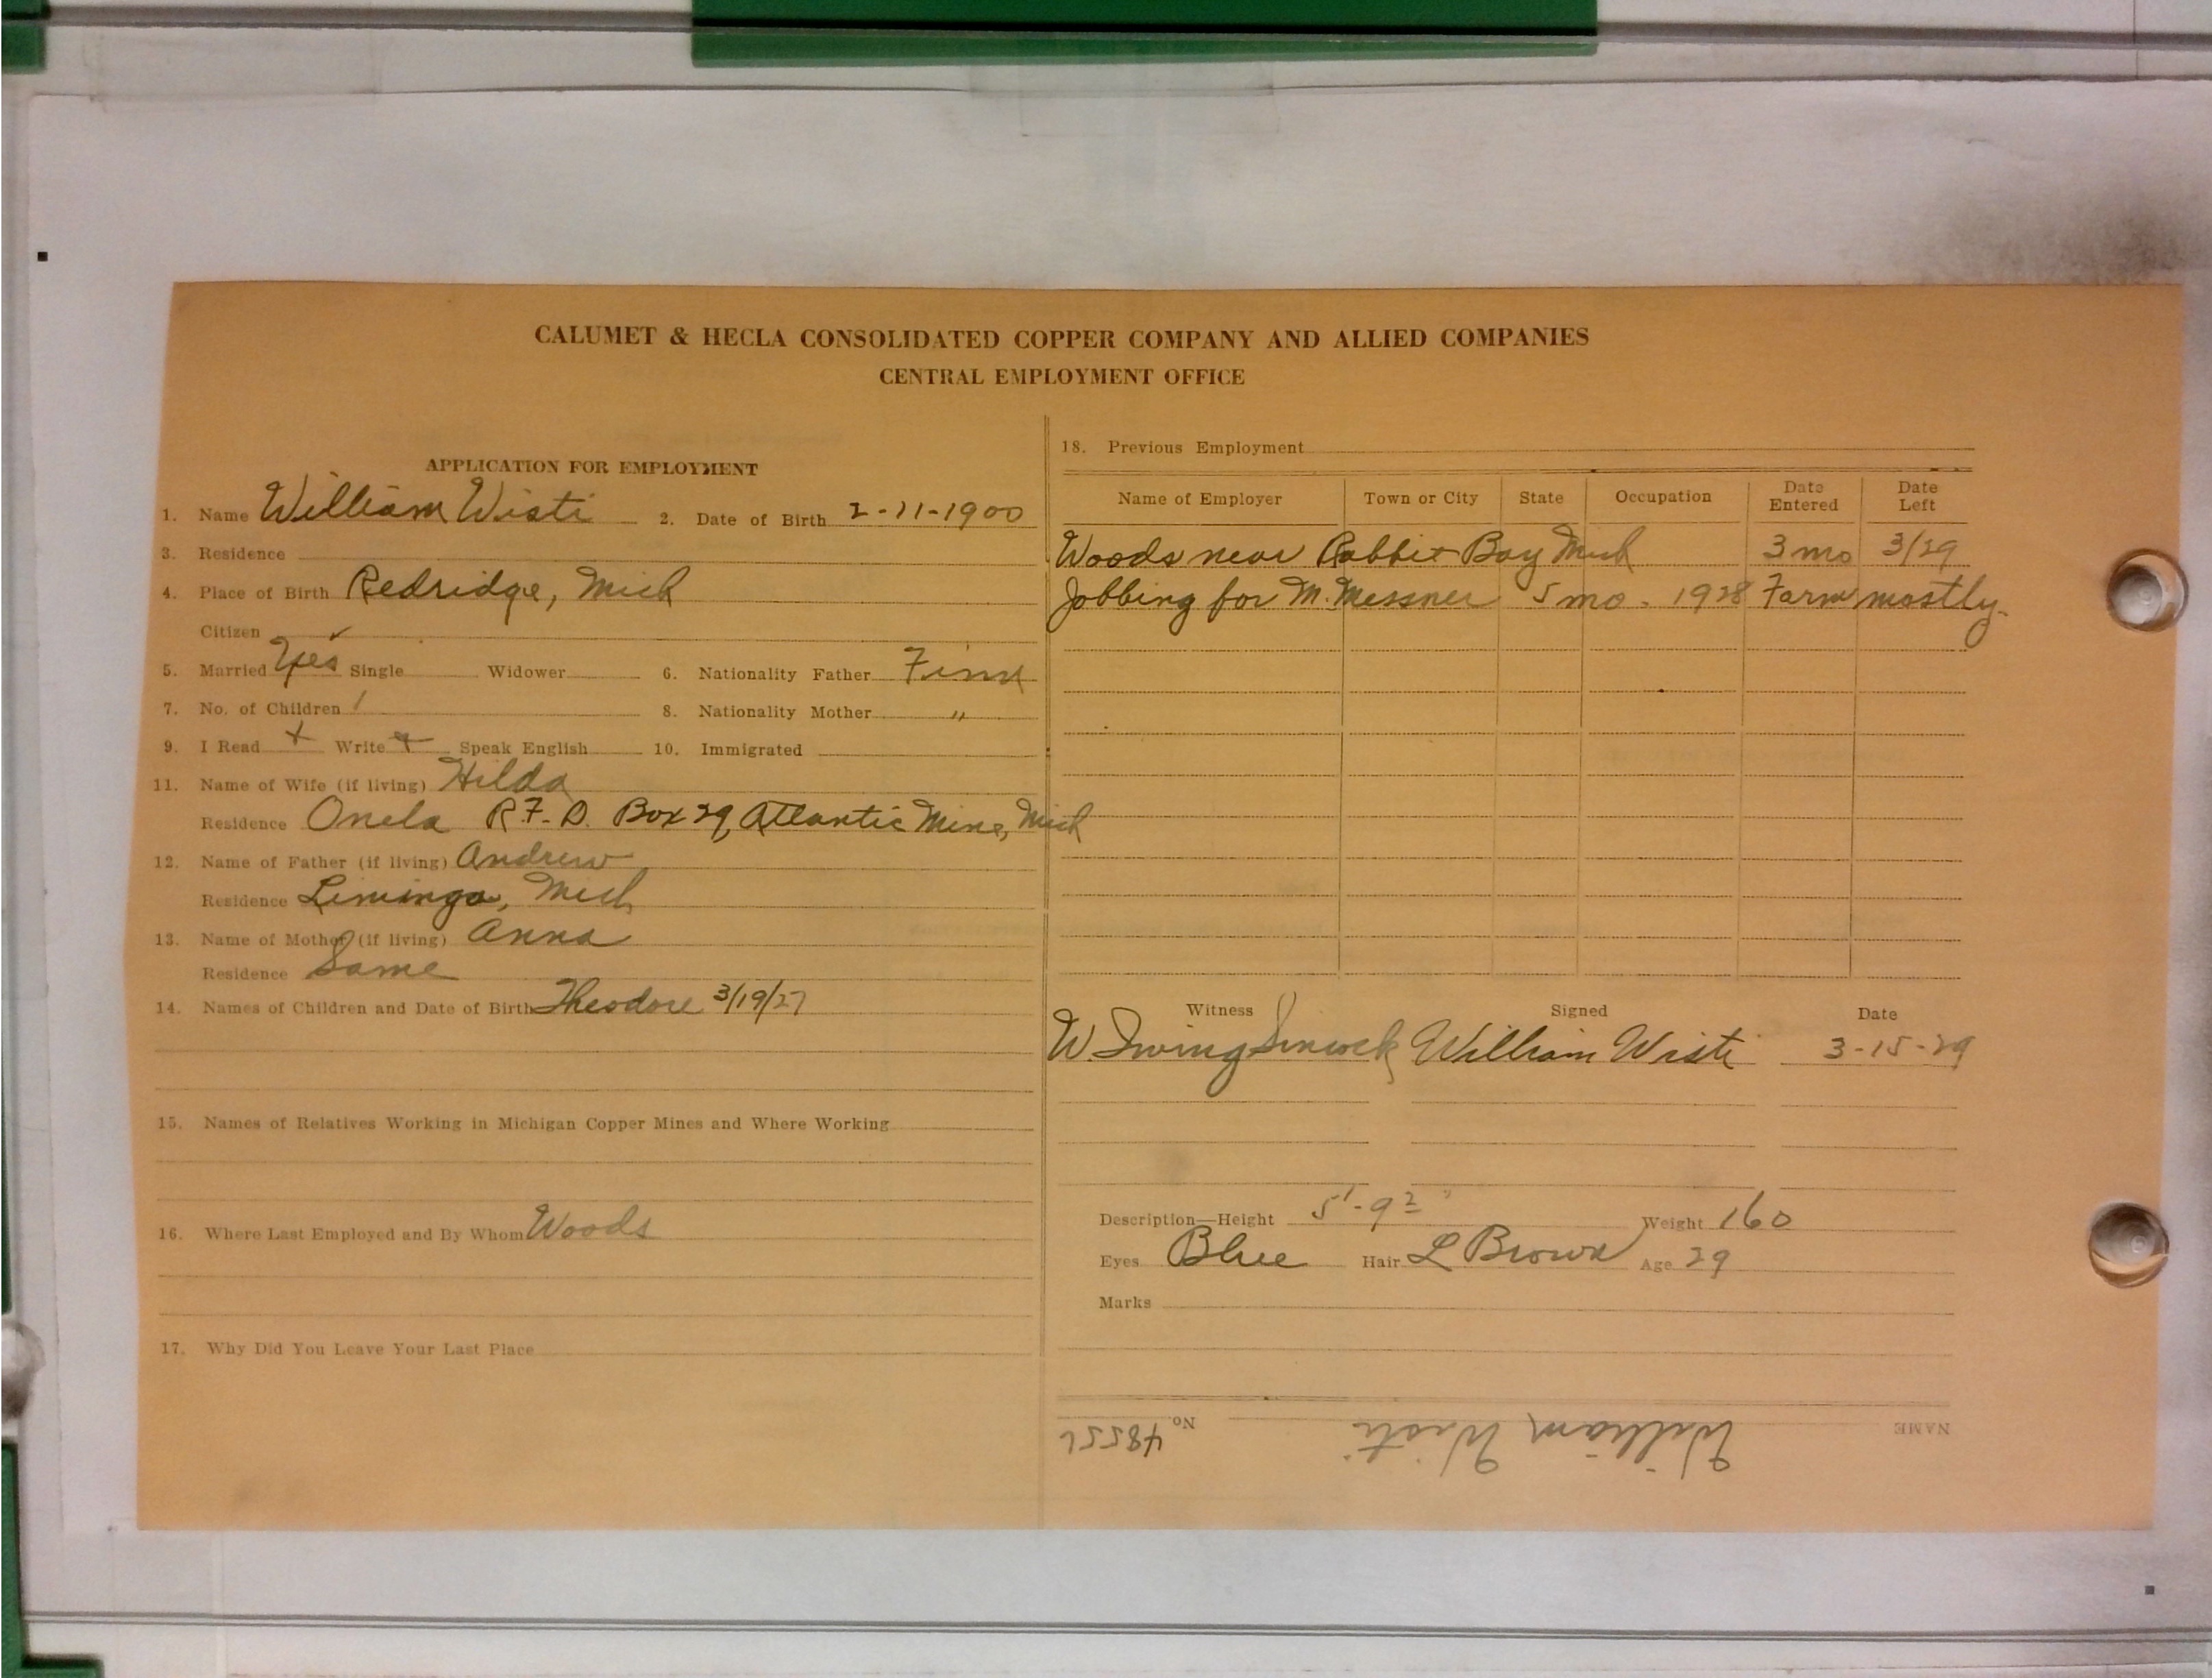 CALUMET & HECLA CONSOLIDATED COPPER COMPANY AND ALLIED COMPANIES
CENTRAL EMPLOYMENT OFFICE
APPLICATION FOR EMPLOYMENT
1. Name William Wisti 2. Date of Birth 2-11-1900
3. Residence
4. Place of Birth Redridge, Mich
Citizen ✓
5. Married Yes Single Widower 6. Nationality Father Finn
7. No. of Children 1 8. Nationality Mother "
9. I Read + Write + Speak English 10. Immigrated
11. Name of Wife (if living) Hilda
Residence Onela R.F.D. Box 29, Atlantic Mine, Mich
12. Name of Father (if living) Andrew
Residence Liminga, Mich
13. Name of Mother (if living) Anna
Residence Same
14. Names of Children and Date of Birth Theodore 3/19/27
15. Names of Relatives Working in Michigan Copper Mines and Where Working
16. Where Last Employed and By Whom Woods
17. Why Did You Leave Your Last Place
18. Previous Employment
Name of Employer Town or City State Occupation Date Entered Date Left
Woods near Rabbit Bay Mich 3 mo 3/29
Jobbing for M. Messner 5 mo. 1928 Farm mostly.
Witness Signed Date
W. Irving William Wisti 3-15-29
Description—Height 5'-9 2" Weight 160
Eyes Blue Hair L Brown Age 29
Marks
NAME William Wisti No. 48556